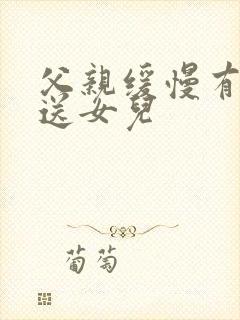 父親緩慢有
送女兒
葡萄